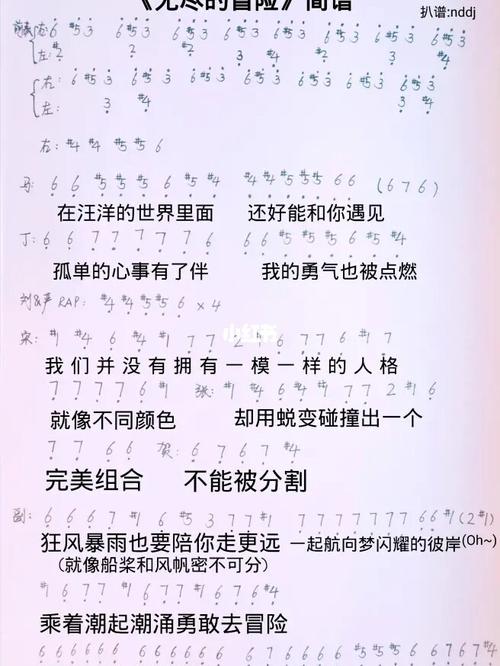 《无尽的冒险》简谱
扒谱:nddj
前奏 右: 6 #5 3 6 #5 3 6 #5 3 6 #5 3 6 #5 3 6 #5 3 6 #5 3 6 #5 3
左: #2 2 #2 #2
右: 6 #5 3 6 #5 3 6 #5 3 6 #5 3 6 #5 3 6 #5 3 6 #5 3 6 #5 3
左: 3 #4 3 #4
右: #4 #4 #5 #5 6
马: 6 6 #5 #5 #5 6 #5 #4 #4 #4 #5 #5 #5 6 6 (6 7 6)
在汪洋的世界里面 还好能和你遇见
丁: 6 6 7 7 7 7 7 6 6 6 #5 #5 #5 6 #5 #4
孤单的心事有了伴 我的勇气也被点燃
刘&声 RAP: #4 #4 #5 #5 6 × 4
小红书
宋: #1 #4 6 #4 #1 7 7 2 #1 6 7 7 6 #1 7
我们并没有拥有一模一样的人格
7 7 7 7 6 #1 张: #1 #4 6 #4 #1 7 7 7 2 #1 6
就像不同颜色 却用蜕变碰撞出一个
7 7 6 6 贺: 6 7 6 7 7 #4
完美组合 不能被分割
副: 6 6 6 7 #1 6 #5 3 7 7 #1 7 7 7 7 7 7 7 6 6 #1 (2 #1)
狂风暴雨也要陪你走更远 一起航向梦闪耀的彼岸(Oh~)
(就像船桨和风帆密不可分)
#1 6 7 7 #1 6 7 7 #1 6 #4
乘着潮起潮涌勇敢去冒险